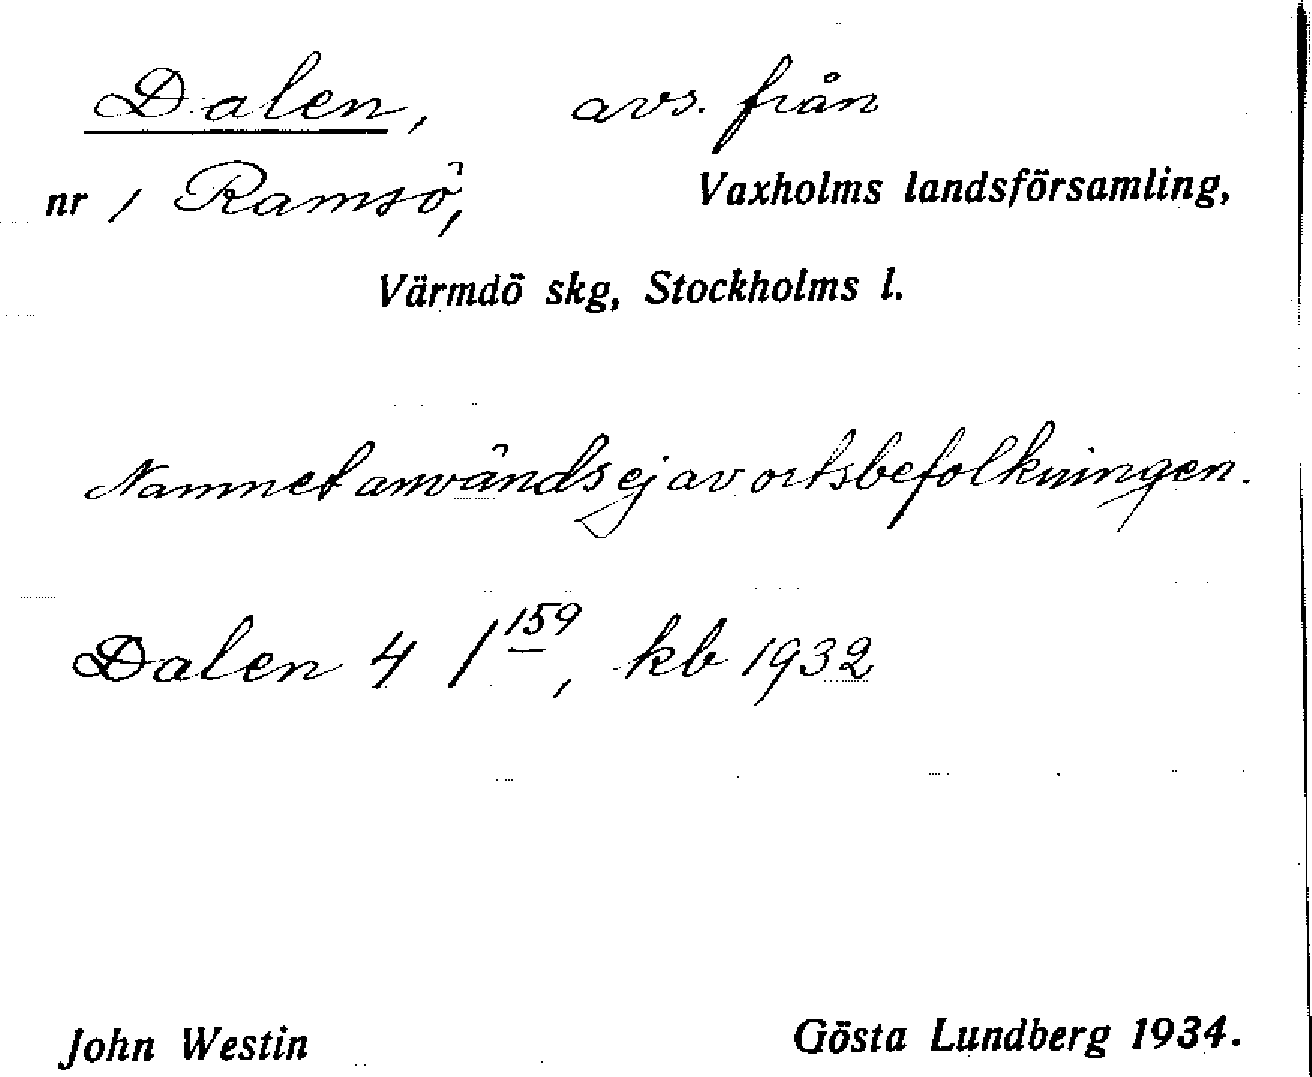 Dalen, avs. från
nr 1 Ramsö, Vaxholms landsförsamling,
Värmdö skg, Stockholms l.
Namnet användes ej av ortsbefolkningen.
Dalen 4 1 159, kb 1932
John Westin Gösta Lundberg 1934.